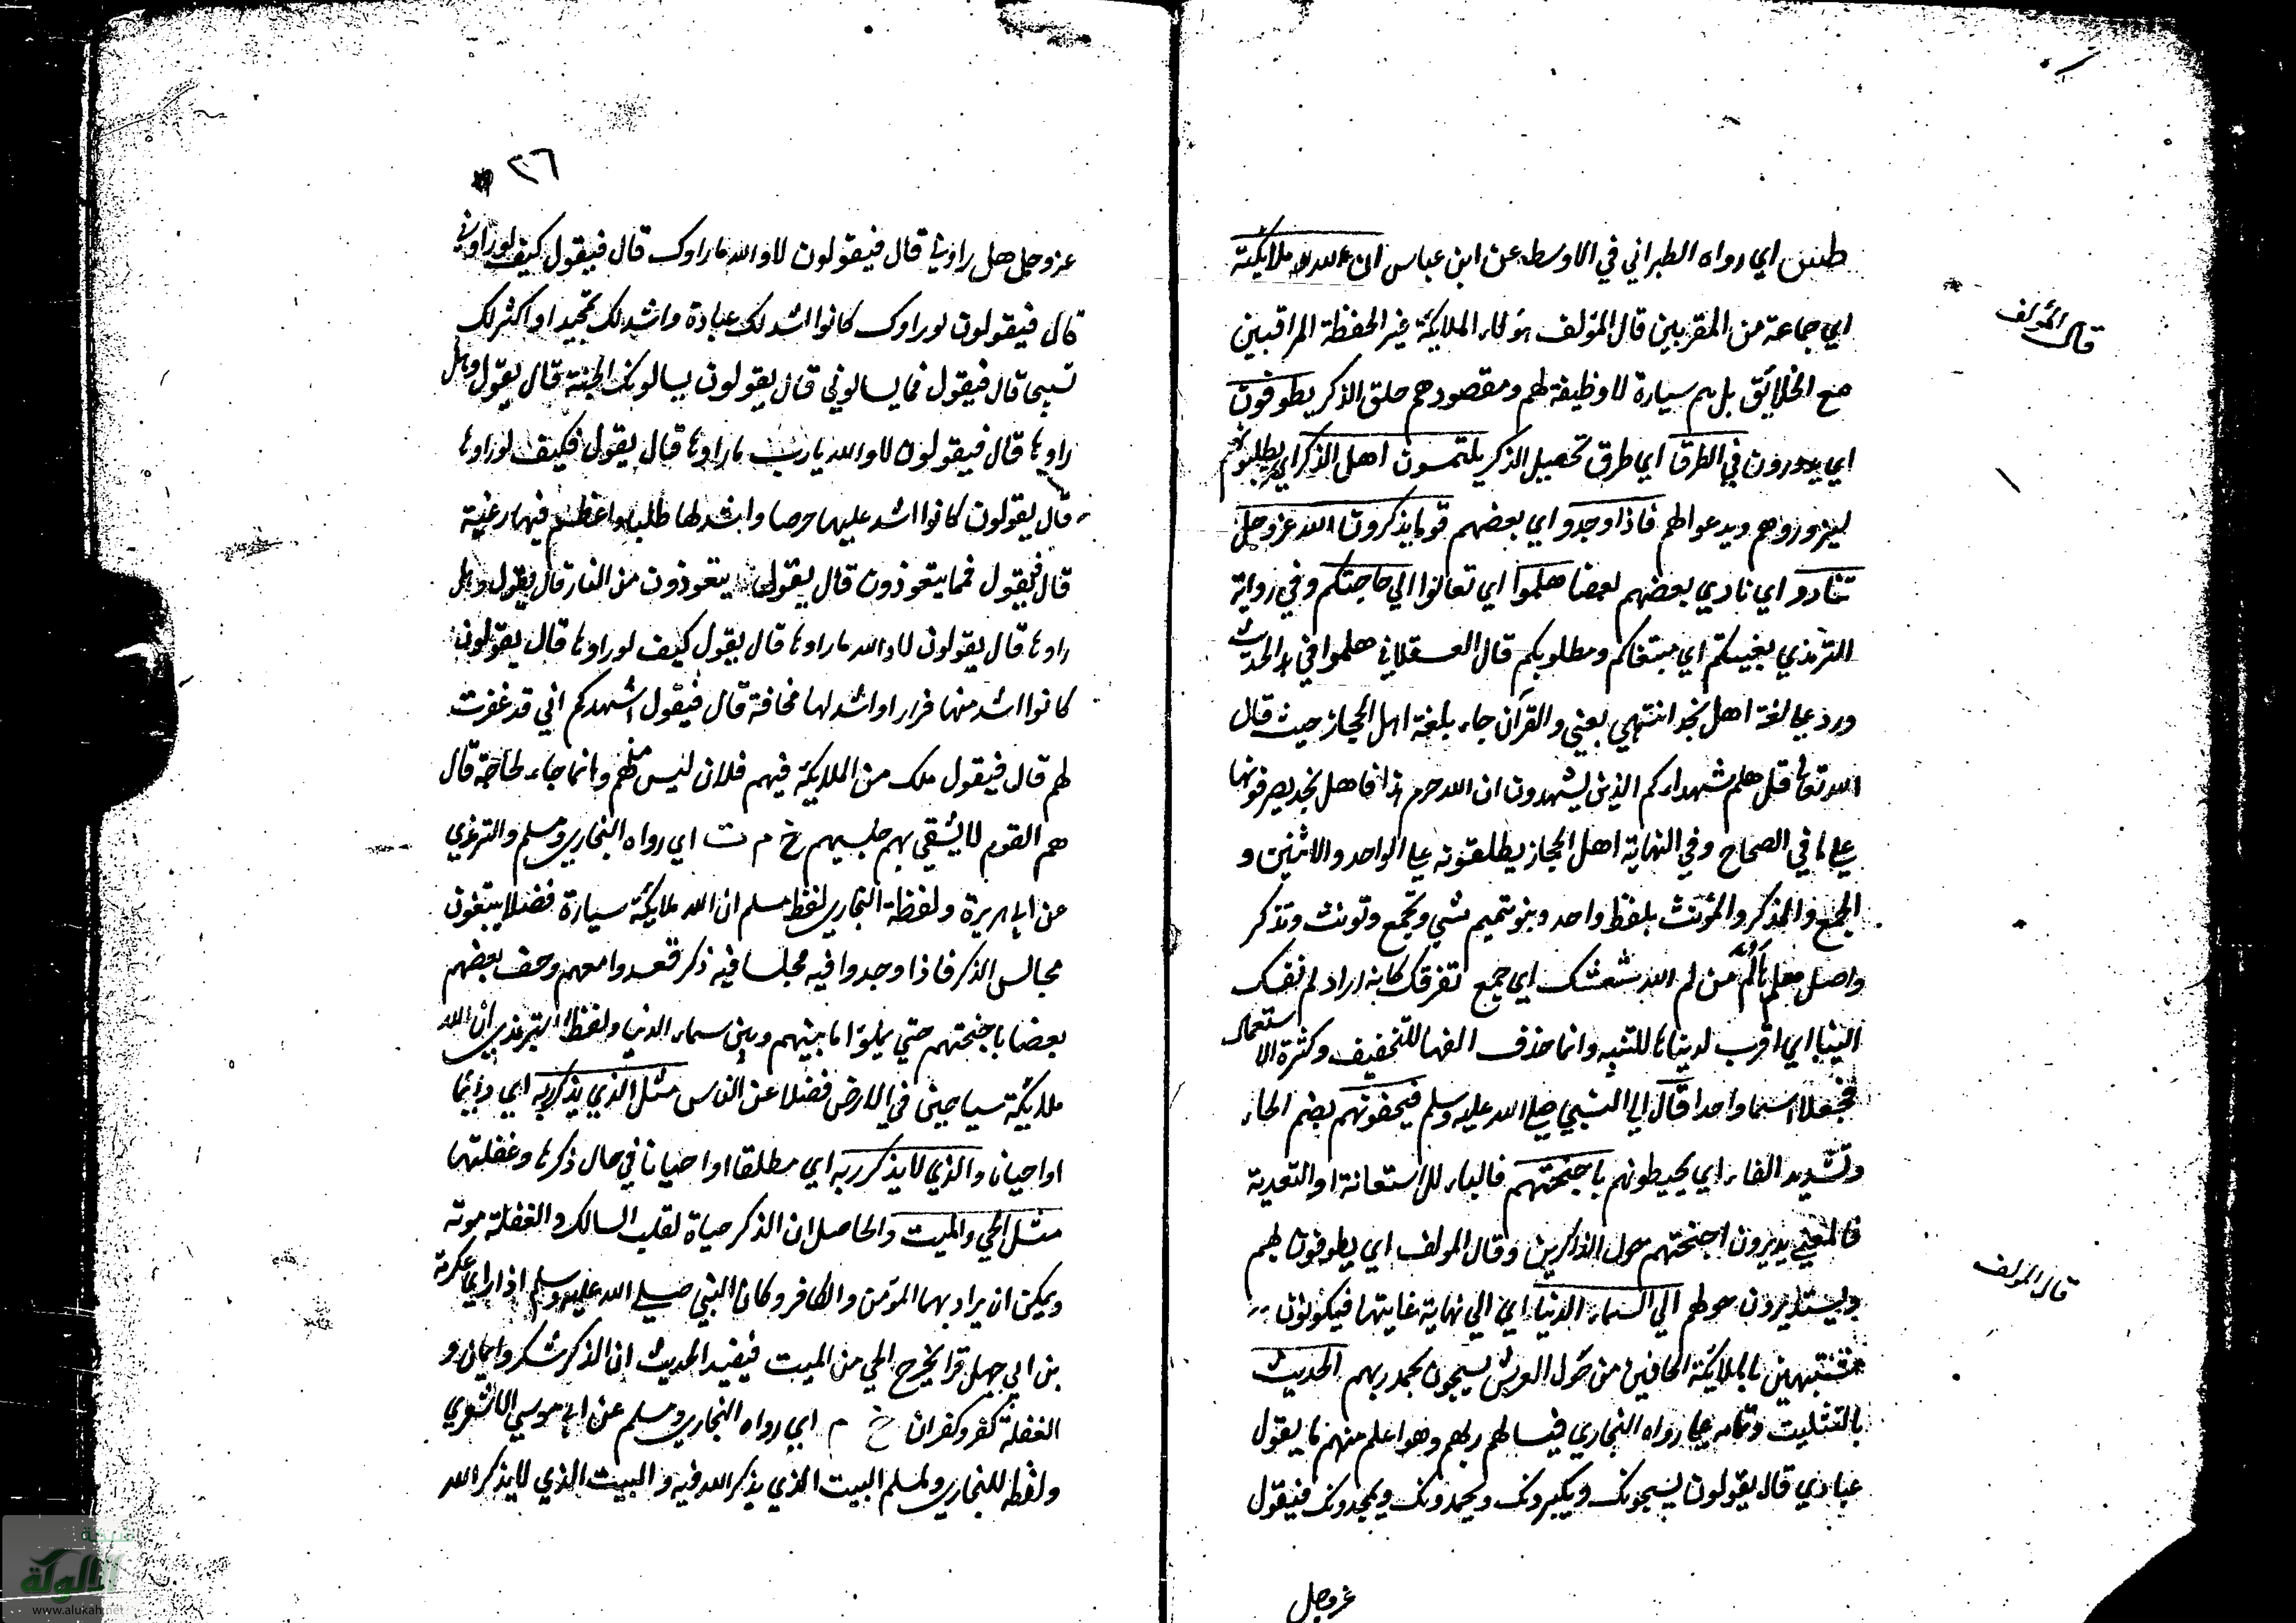 طس اي رواه الطبراني في الاوسط عن ابن عباس ان لله ملايكة
اي جماعة من المقربين قال المؤلف هولاء الملايكة غير الحفظة المراقبين
قال المؤلف
مع الخلايق بل هم سيارة لا وظيفة لهم ومقصودهم حلق الذكر يطوفون
اي يدورون في الطرق اي طرق تحصيل الذكر يلتمسون اهل الذكر اي يطلبونهم
ليزوروهم ويدعوا لهم فاذا وجدوا اي بعضهم قوما يذكرون الله عز وجل
تنادوا اي نادي بعضهم بعضا هلموا اي تعالوا الي حاجتكم وفي رواية
الترمذي بغيتكم اي مبتغاكم ومطلوبكم قال العسقلاني هلموا في الحديث
ورد علي لغة اهل نجد انتهي يعني والقرآن جاء بلغة اهل الحجاز حيث قال
الله تعالي قل هلم شهداءكم الذين يشهدون ان الله حرم هذا فاهل نجد يصرفونها
علي ما في الصحاح وفي النهاية اهل الحجاز يطلقونه علي الواحد والاثنين و
الجمع والمذكر والمؤنث بلفظ واحد وبنو تميم تثني وتجمع وتونث وتذكر
واصل هلم لم من لم الله شعثك اي جمع تفرقك كانه اراد لم نفسك
الينا اي اقرب لدينا ها للتنبيه وانما حذف الفها للتخفيف وكثرة الاستعمال
فجعلا اسما واحدا قال اي النبي صلي الله عليه وسلم فيحفونهم بضم الحاء
وتشديد الفاء اي يحيطونهم باجنحتهم فالباء للاستعانة او التعدية
فالمعني يديرون اجنحتهم حول الذاكرين وقال المولف اي يطوفون لهم
قال المولف
ويستديرون حولهم الي السماء الدنيا اي الي نهاية غايتها فيكونون
متشبهين بالملايكة الحافين من حول العرش يسبحون بحمد ربهم الحديث
بالتثليت وتمامه علي ما رواه البخاري فيسالهم ربهم وهو اعلم منهم ما يقول
عبادي قال يقولون يسبحونك ويكبرونك ويحمدونك ويمجدونك فيقول
عز وجل
٢٦
عز وجل هل راوني قال فيقولون لا والله ما راوك قال فيقول كيف لو راوني
قال فيقولون لو راوك كانوا اشد لك عبادة واشد لك تمجيدا واكثر لك
تسبيحا قال فيقول فما يسالوني قال يقولون يسالونك الجنة قال يقول وهل
راوها قال فيقولون لا والله يا رب ما راوها قال يقول فكيف لو راوها
قال يقولون كانوا اشد عليها حرصا واشد لها طلبا واعظم فيها رغبة
قال فيقول فما يتعوذون قال يقولون يتعوذون من النار قال يقول وهل
راوها قال يقولون لا والله ما راوها قال يقول كيف لو راوها قال يقولون
كانوا اشد منها فرارا واشد لها مخافة قال فيقول اشهدكم اني قد غفرت
لهم قال فيقول ملك من الملايكة فيهم فلان ليس منهم وانما جاء لحاجة قال
هم القوم لا يشقي بهم جليسهم خ م ت اي رواه البخاري ومسلم والترمذي
عن ابي هريرة ولفظه البخاري لفظ مسلم ان لله ملايكة سيارة فضلا يبتغون
مجالس الذكر فاذا وجدوا فيه مجلسا فيه ذكر قعدوا معهم وحف بعضهم
بعضا باجنحتهم حتي يملؤا ما بينهم وبين سماء الدنيا ولفظ الترمذي ان لله
ملايكة سياحين في الارض فضلا عن الناس مثل الذي يذكر ربه اي دايما
او احيانا والذي لا يذكر ربه اي مطلقا او احيانا في حال ذكرها وغفلتها
مثل الحي والميت والحاصل ان الذكر حياة لقلب السالك والغفلة موته
ويمكن ان يراد بهما المؤمن والكافر وكان النبي صلي الله عليه وسلم اذا راي عكرمة
بن ابي جهل قرا يخرج الحي من الميت فيفيد الحديث ان الذكر شكر وايمان و
الغفلة كفر وكفران خ م اي رواه البخاري ومسلم عن ابي موسي الاشعري
ولفظه للبخاري ولمسلم البيت الذي يذكر الله فيه والبيت الذي لا يذكر الله
شبكة
الألوكة
www.alukah.net